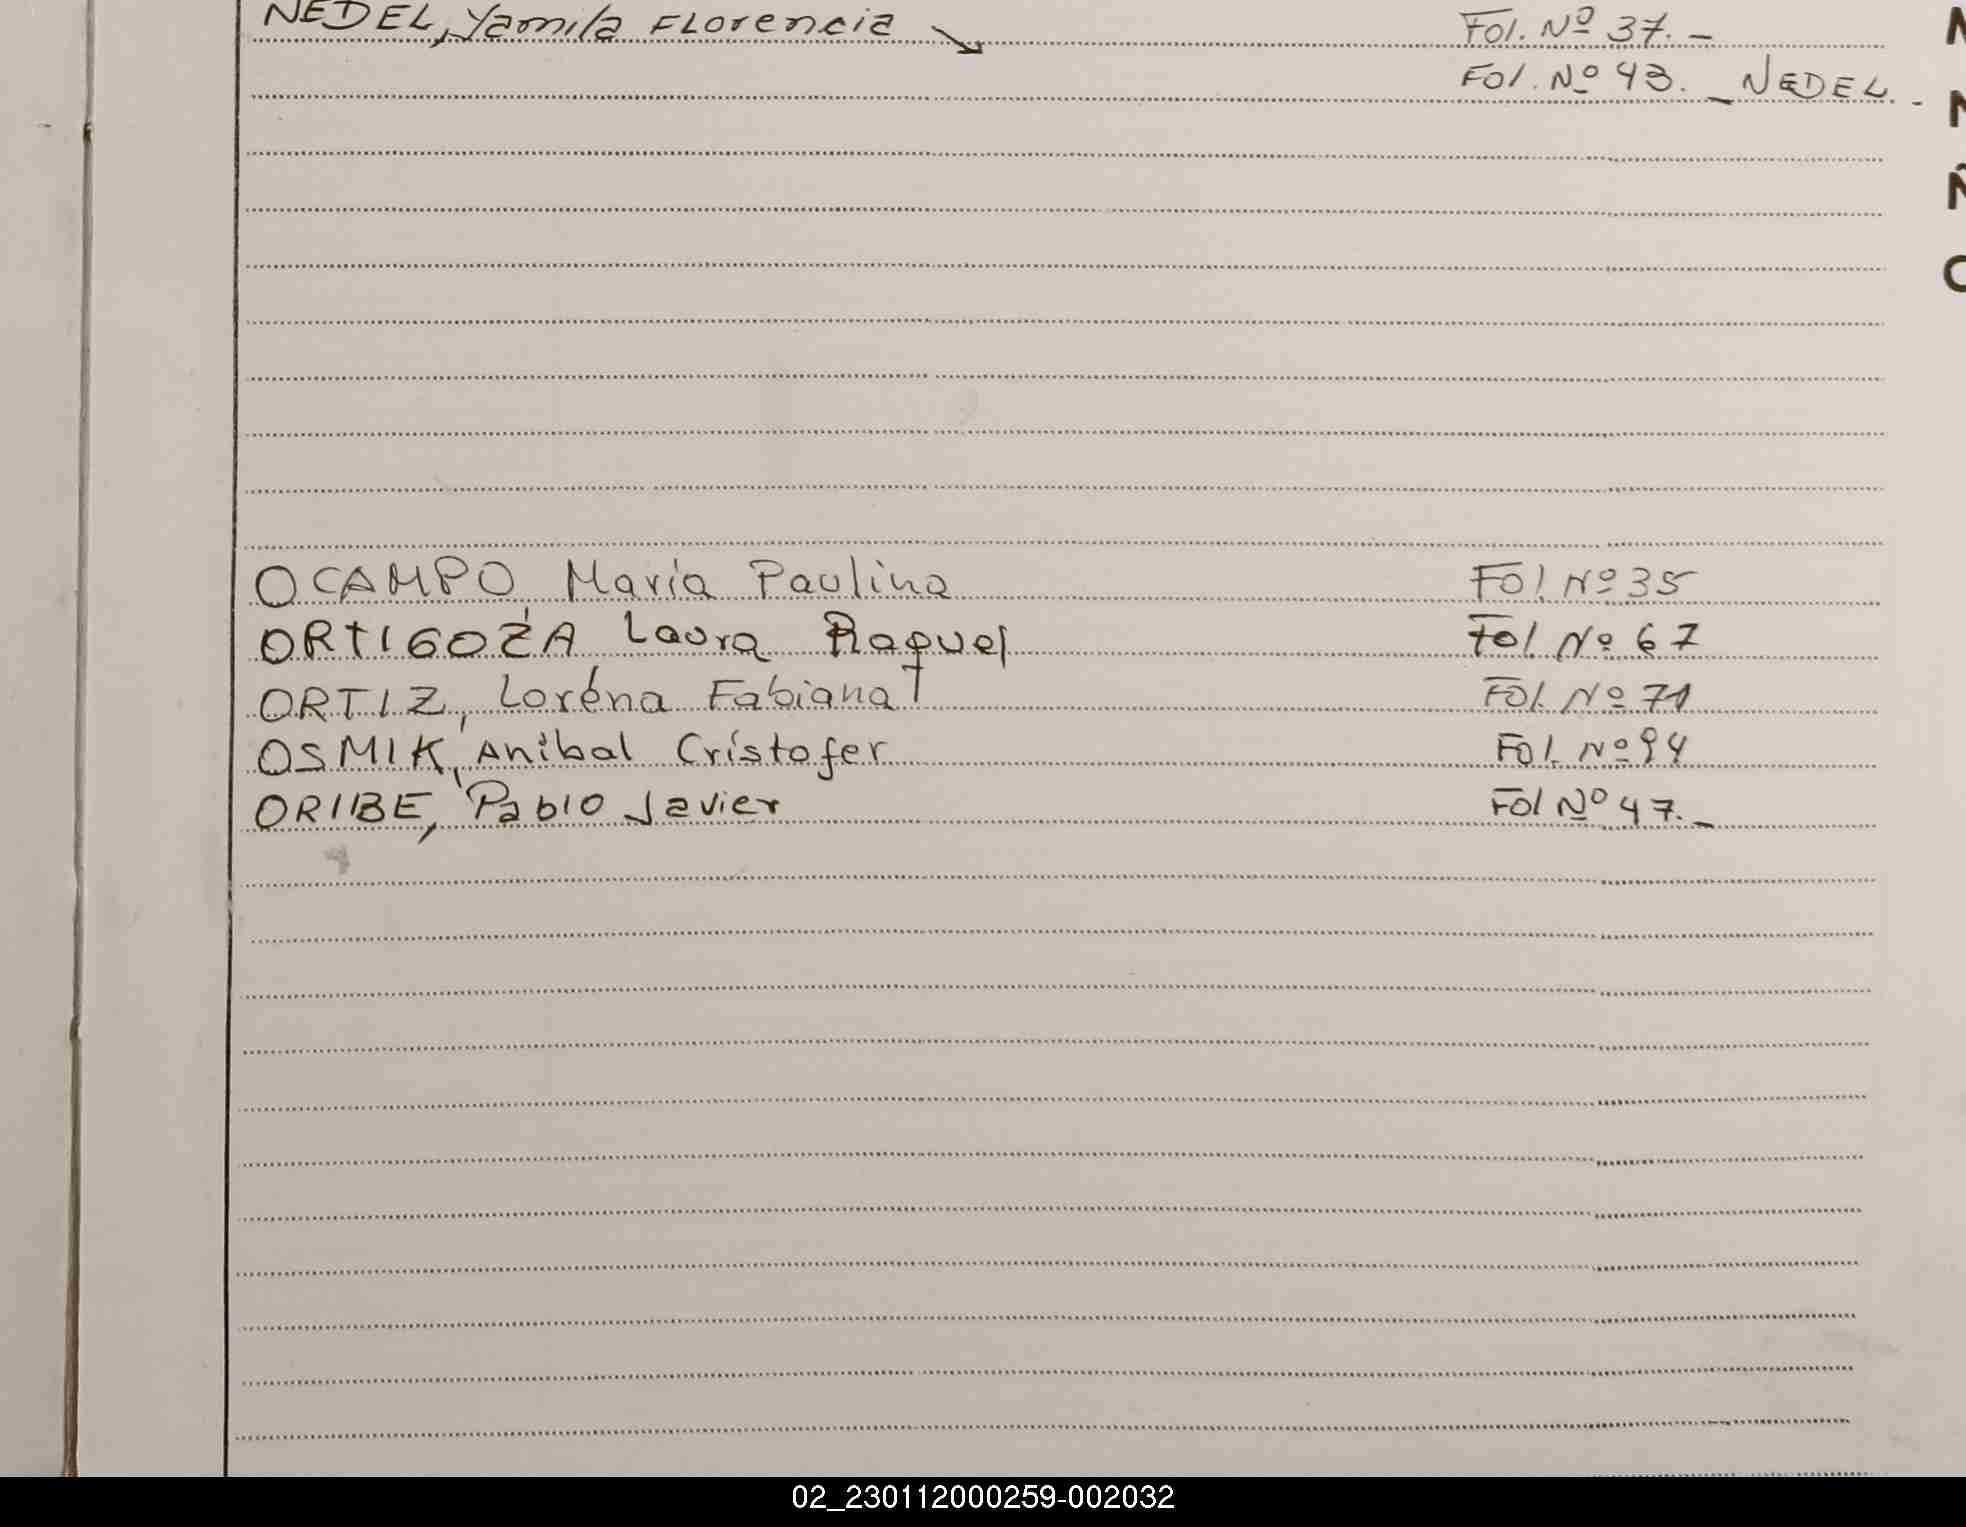 NEDEL, Yamila Florencia Fol. Nº 37. -
Fol. Nº 43. - NEDEL. -
OCAMPO, Maria Paulina Fol. Nº 35
ORTIGOZA Laura Raquel Fol. Nº 67
ORTIZ, Lorena Fabiana Fol. Nº 71
OSMIK, Anibal Cristofer Fol. Nº 94
ORIBE, Pablo Javier Fol Nº 47. -
N
N
Ñ
O
02_230112000259-002032